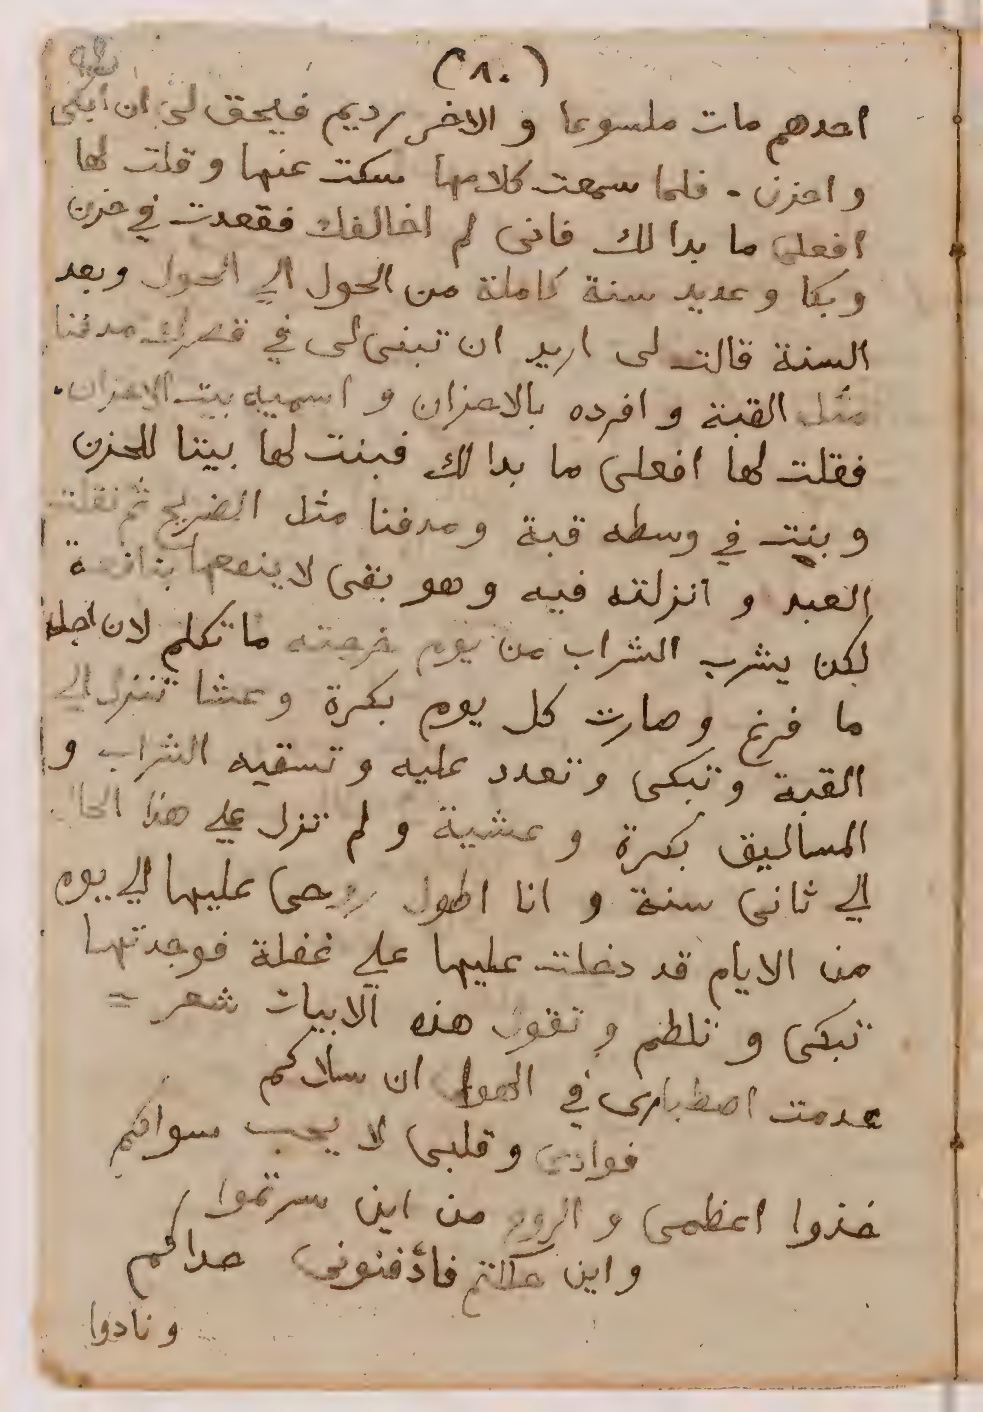 (٨٠)
احدهم مات ملسوعا و الاخر رديم فيحق لى ان ابكى
و احزن . فلما سمعت كلامها سكت عنها و قلت لها
افعلى ما بدا لك فانى لم اخالفك فقعدت في حزن
و بكا و عديد سنة كاملة من الحول الي الحول و بعد
السنة قالت لى اريد ان تبنى لى في قصرك مدفنا
مثل القبة و افرده بالاحزان و اسميه بيت الاحزان .
فقلت لها افعلى ما بدا لك فبنت لها بيتا للحزن
و بنت في وسطه قبة و مدفنا مثل الضريح ثم نقلت
العبد و انزلته فيه و هو بقى لا ينفعها بنافعة
لكن يشرب الشراب من يوم جرحته ما تكلم لان اجله
ما فرغ و صارت كل يوم بكرة و عشا تنزل الي
القبة و تبكى و تعدد عليه و تسقيه الشراب و
المساليق بكرة و عشية و لم تزل علي هذا الحال
الي ثانى سنة و انا اطول روحى عليها الي يوم
من الايام قد دخلت عليها علي غفلة فوجدتها
تبكى و تلطم و تقول هذه الابيات شعر =
عدمت اصطبارى في الهوى ان سلاكم
فوادى و قلبى لا يحب سواكم
خذوا اعظمى و الروح من اين سرتموا
و اين حللتم فادفنونى حداكم
و نادوا